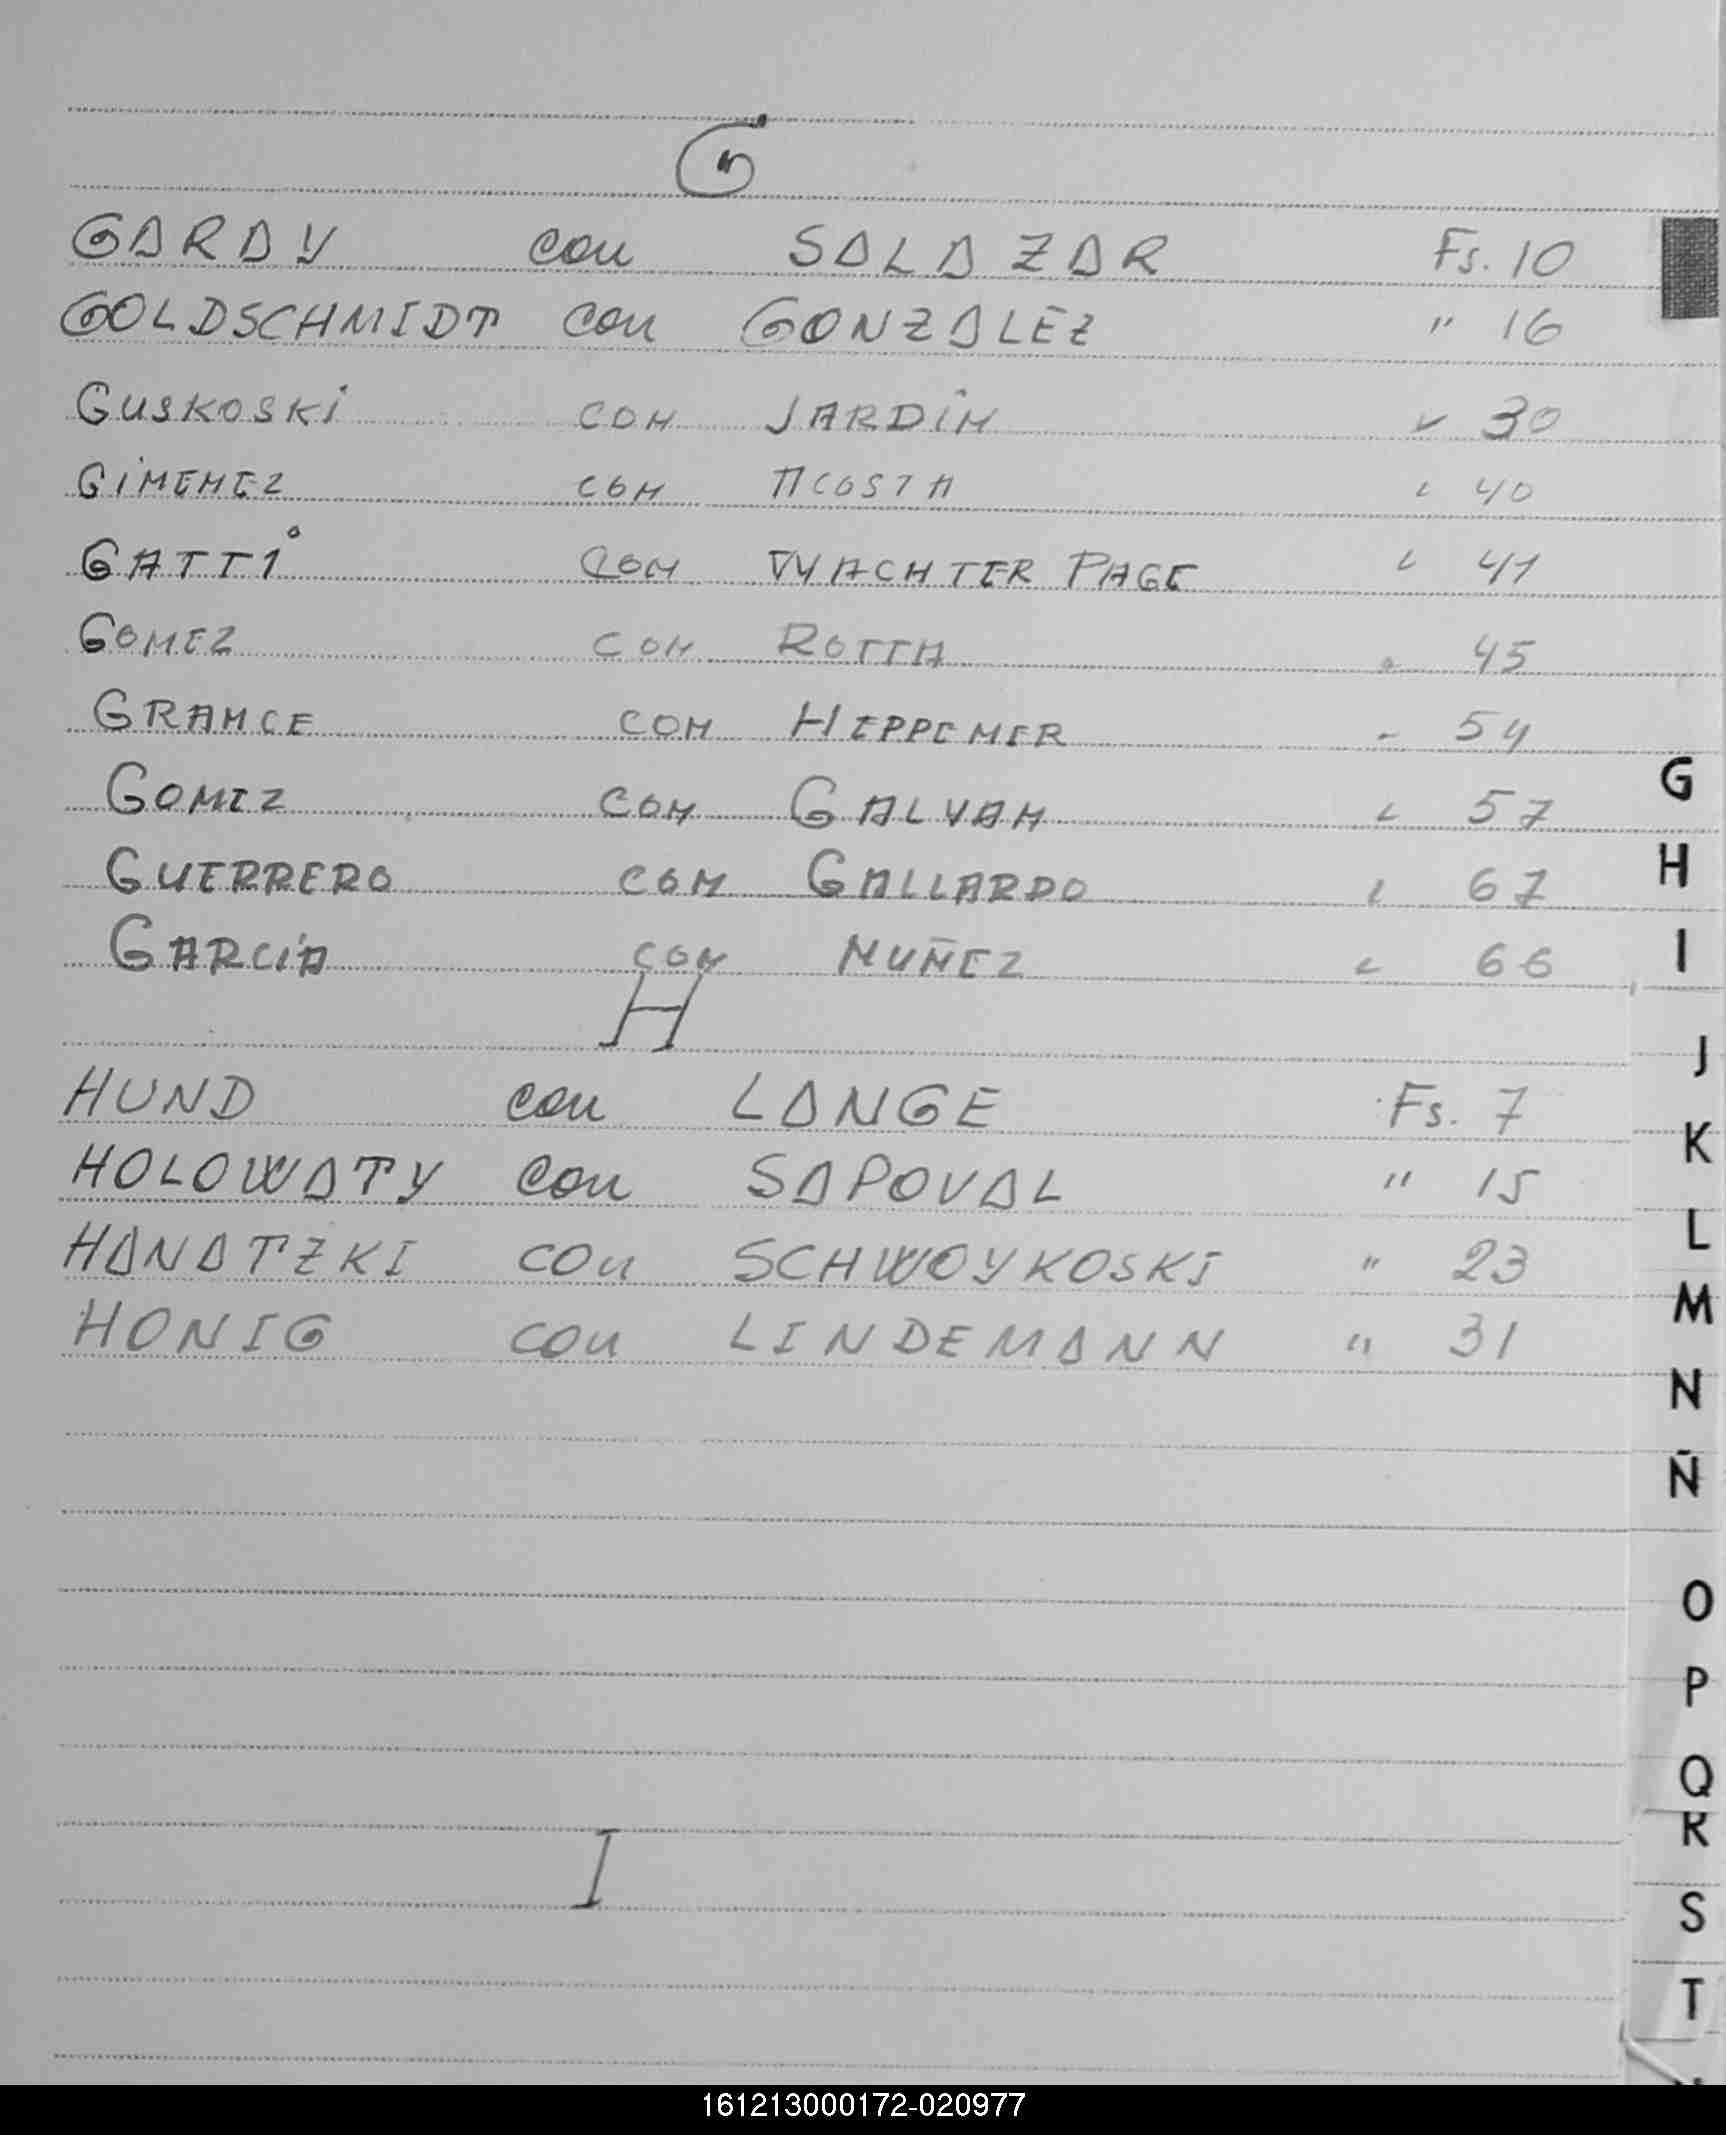 G
GARAY con SALAZAR Fs. 10
GOLDSCHMIDT con GONZALEZ " 16
GUSKOSKI CON JARDIN " 30
GIMENEZ CON ACOSTA " 40
GATTI CON WACHTER PAGE " 41
GOMEZ CON ROTTA " 45
GRANCE CON HEPPENER " 54
GOMEZ CON GALVAN " 57
GUERRERO CON GALLARDO " 67
GARCÍA CON NUÑEZ " 66
H
HUND con LANGE Fs. 7
HOLOWATY con SAPOVAL " 15
HANATZKI con SCHWOYKOSKI " 23
HONIG con LINDEMANN " 31
I
G
H
I
J
K
L
M
N
Ñ
O
P
Q
R
S
T
161213000172-020977